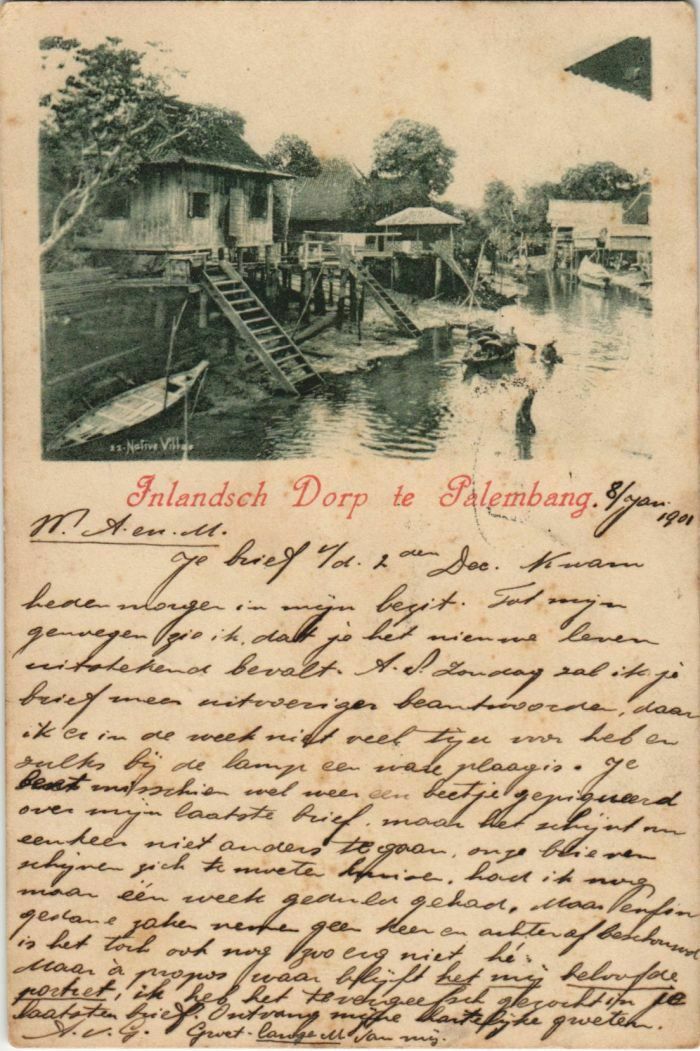 22-Native Village
Inlandsch Dorp te Palembang.
8/Jan.
1901
W. A. en M.
Je brief v/d. 2den Dec. kwam
heden morgen in mijn bezit. Tot mijn
genoegen zie ik, dat je het nieuwe leven
uitstekend bevalt. A.S. Zondag zal ik je
brief meer uitvoeriger beantwoorden, daar
ik er in de week niet veel tijd voor heb en
zulks bij de lamp een ware plaag is. Je
bent misschien wel weer een beetje gepiqueerd
over mijn laatste brief, maar het schijnt nu
eenkeer niet anders te gaan, onze brieven
schijnen zich te moeten kruisen, had ik nog
maar één week geduld gehad. Maar enfin
gedane zaken nemen geen keer en achteraf beschouwd
is het toch ook nog zoo erg niet, hé.
Maar à propos waar blijft het mij beloofde
portret, ik heb het tevergeefsch gezocht in je
laatsten brief. Ontvang mijne hartelijke groeten.
A. v. G. Groet M. van mij.